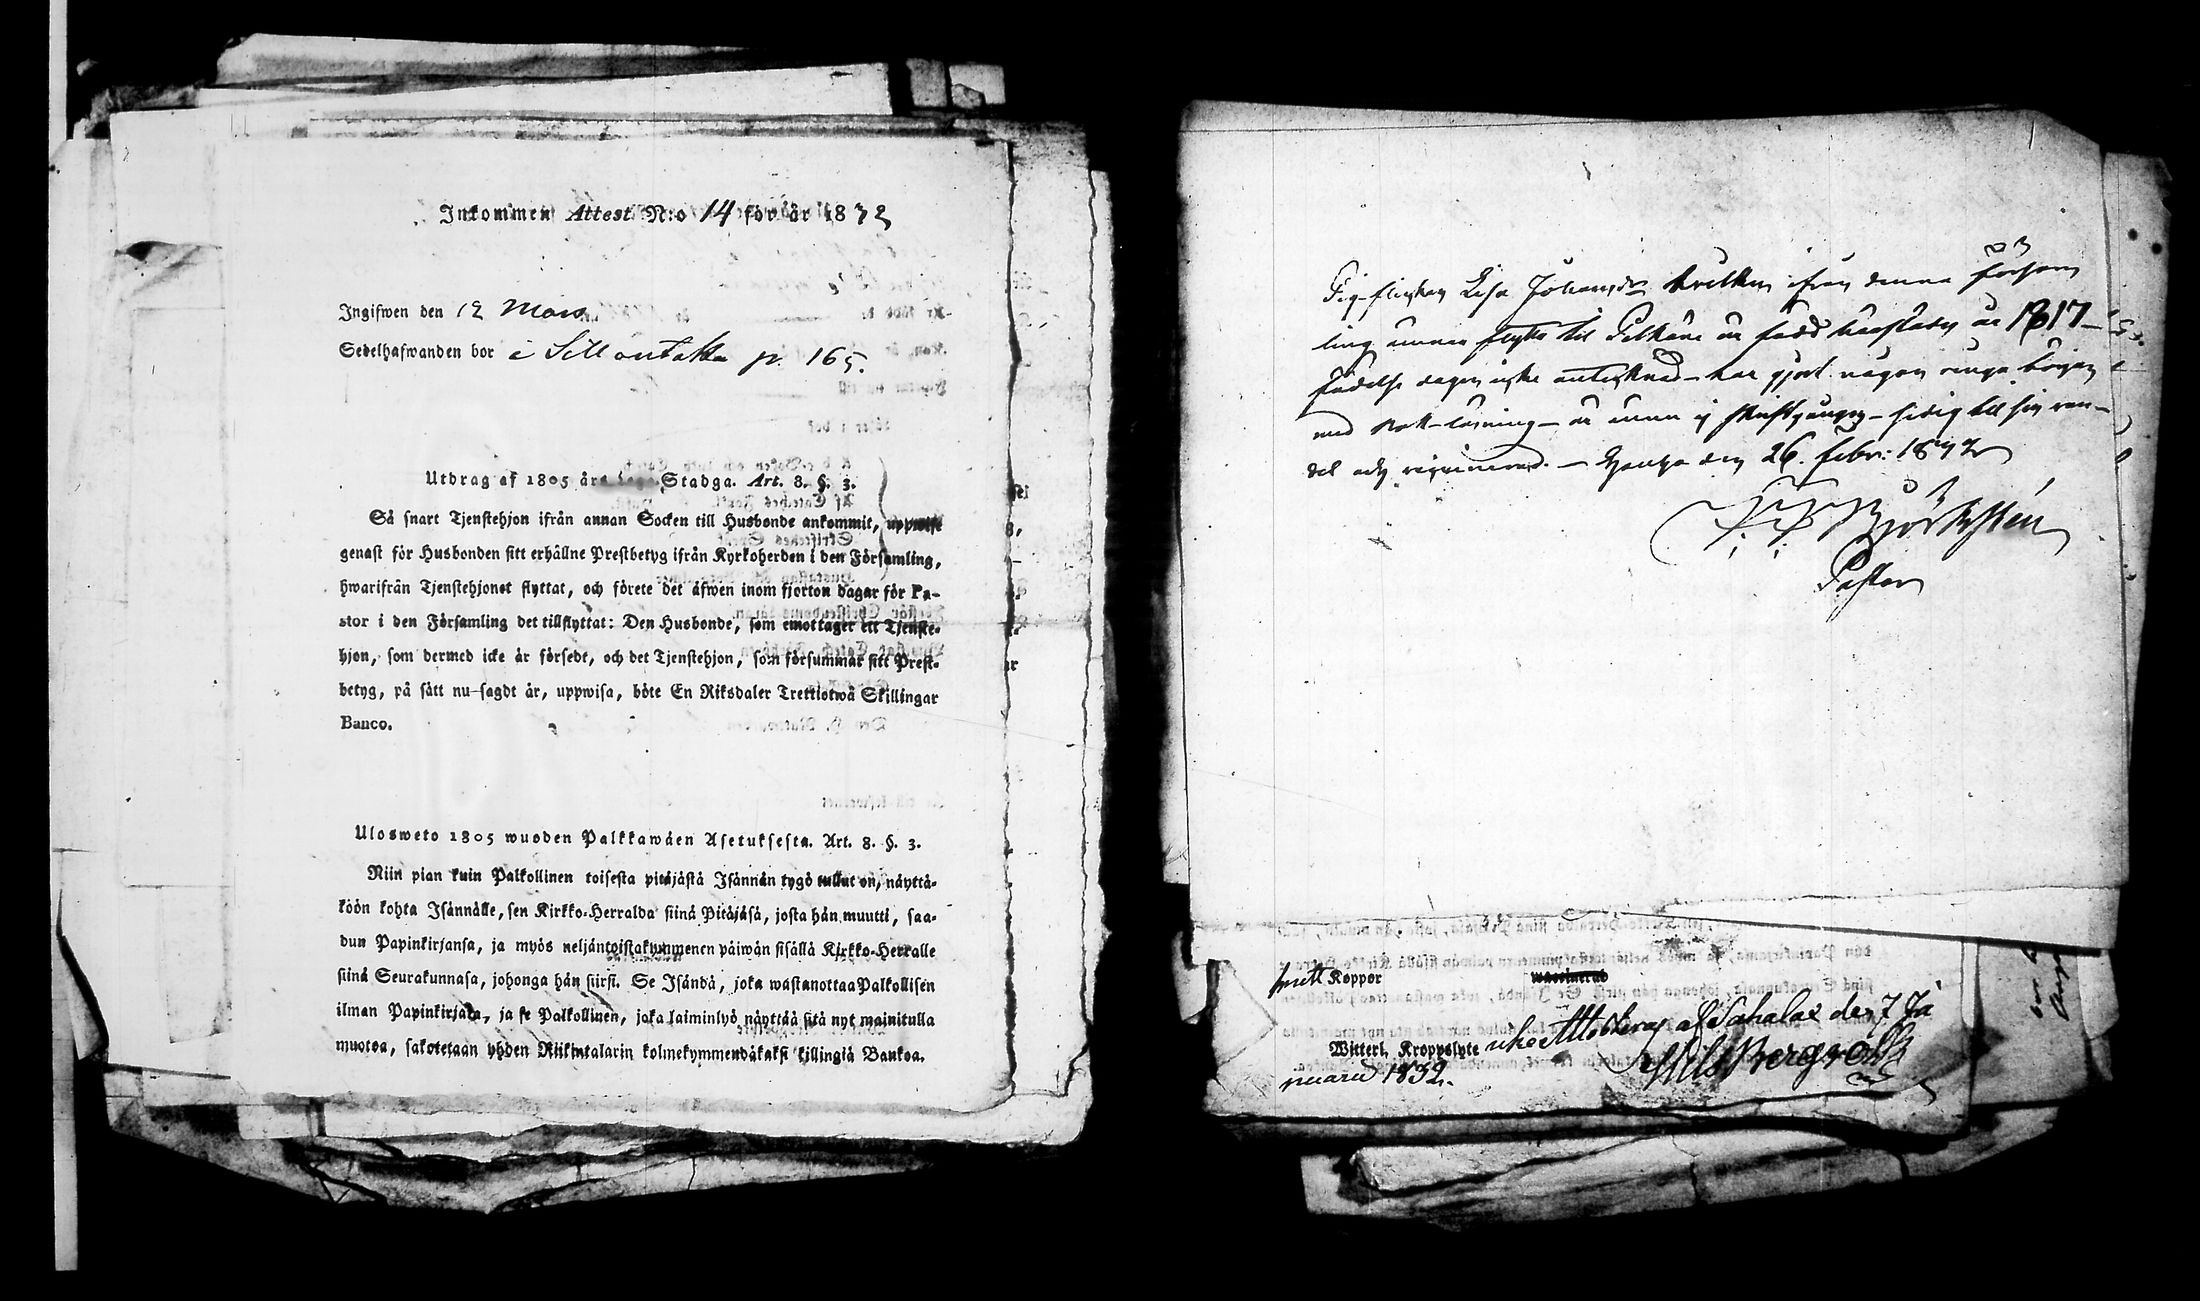 Inkommen Attest N:o 14 för år 1832
Ingifwen den 12 Mars
Sedelhafwanden bor i Sillontakka p. 165.
Utdrag af 1805 års Lego-Stadga. Art. 8. §. 3.
Så snart Tjenstehjon ifrån annan Socken till Husbonde ankommit, uppwise
genast för Husbonden sitt erhållne Prestbetyg ifrån Kyrkoherden i den Församling,
hwarifrån Tjenstehjonet flyttat, och förete det äfwen inom fjorton dagar för Pa-
stor i den Församling det tillflyttat: Den Husbonde, som emottager ett Tjenste-
hjon, som dermed icke är försedt, och det Tjenstehjon, som försummar sitt Prest-
betyg, på sätt nu-sagdt är, uppwisa, böte En Riksdaler Trettiotwå Skillingar
Banco.
Ulosweto 1805 wuoden Palkkawäen Asetuksesta. Art. 8. §. 3.
Niin pian kuin Palkollinen toisesta pitäjästä Isännän tygö tullut on, näyttä-
köön kohta Isännälle, sen Kirkko-Herralda siinä Pitäjäsä, josta hän muutti, saa-
dun Papinkirjansa, ja myös neljäntoistakymmenen päiwän sisällä Kirkko-Herralle
siinä Seurakunnasa, johonga hän siirsi. Se Isändä, joka wastanottaa Palkollisen
ilman Papinkirjata, ja se Palkollinen, joka laiminlyö näyttää sitä nyt mainitulla
muotoa, sakotetaan yhden Riikintalarin kolmekymmendäkaksi killingiä Bankoa.
Pig-flickan Lisa Johansdr hvilken ifrån denna Försam
ling ämnar flytta til Pelkäne är född hästaden år 1817 –
födelse dagen icke antecknad – har gjort någon ringa början
med bok-läsning – är ännu ej skriftgången – fredig till sin van-
del och vaccinerad. – Hauho den 26. Febr: 1832
Björkstén
Pastor
haft Koppor
Witterl. Kroppslyte uke Attesteras af Sahalax den 7 Ja
nuarii 1832.
Nils Bergroth